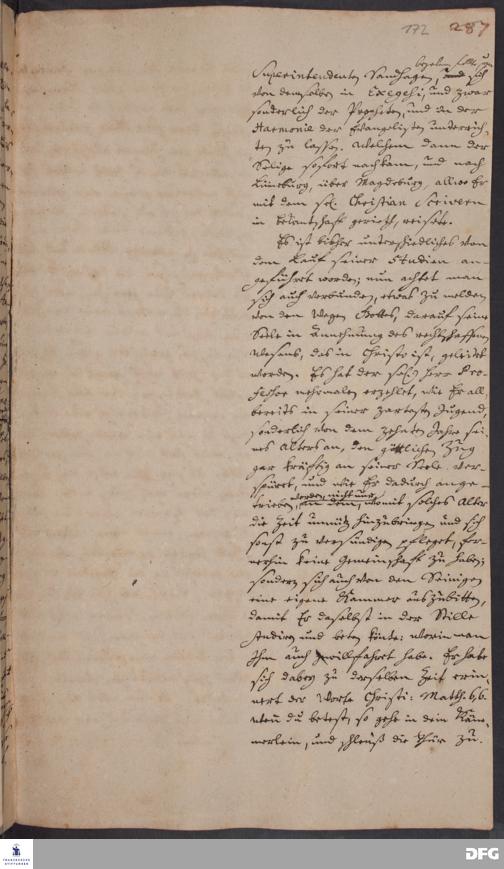 172 287
begeben solte, u.
Superintendenten Sandhagen, und sich
von demselben in Exegesi, und zwar
sonderlich der Propheten, und in der
Harmonie der Evangelisten unterrich-
ten zu lassen. Welchem dann der
Selige sofort nachkam, und nach
Lüneburg, über Magdeburg, allwo Er
mit dem sel. Christian Scrivern
in bekantschaft gerieth, reisete.
Es ist bisher unterschiedliches von
dem Lauf seiner Studien an-
geführet worden; nun achtet man
sich auch verbunden, etwas zu melden,
von den Wegen Gottes, darauf seine
Seele in Annehmung des rechtschaffenen
Wesens, das in Christo ist, geleitet
worden. Es hat der sel. Herr Pro-
fessor mehrmalen erzehlet, wie Er all-
bereits in seiner zartesten Jugend,
sonderlich von dem zehnten Jahre sei-
nes Alters an, den göttlichen Zug
gar kräftig an seiner Seele ver-
spüret, und wie Er dadurch ange-
trieben worden, nicht nur mit dem, womit solches Alter
die Zeit unnütz hinzubringen und sich
sonst zu versündigen pfleget, fer-
nerhin keine Gemeinschaft zu haben;
sondern sich auch von den Seinigen
eine eigene Kammer auszubitten,
damit Er daselbst in der Stille
studiren und beten könte: worin man
Ihm auch gewillfahrt habe. Er habe
sich dabey zu derselben Zeit erin-
nert der Worte Christi: Matth. 6,6.
wenn du betest, so gehe in dein Käm-
merlein, und schleuß die Thür zu.
FRANCKESCHE
STIFTUNGEN
DFG